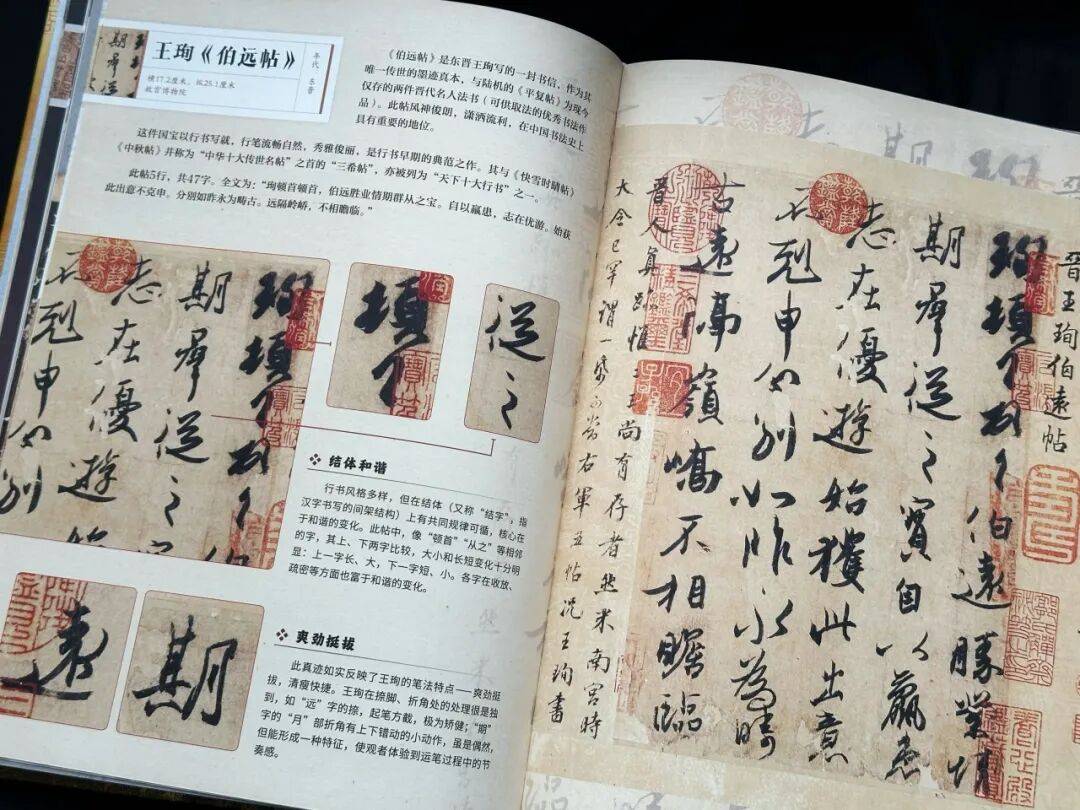 王珣《伯远帖》
横17.2厘米，纵25.1厘米
故宫博物院
年代 东晋
《伯远帖》是东晋王珣写的一封书信，作为其
唯一传世的墨迹真本，与陆机的《平复帖》为现今
仅存的两件晋代名人法书（可供取法的优秀书法作
品）。此帖风神俊朗，潇洒流利，在中国书法史上
具有重要的地位。
这件国宝以行书写就，行笔流畅自然，秀雅俊丽，是行书早期的典范之作。其与《快雪时晴帖》
《中秋帖》并称为“中华十大传世名帖”之首的“三希帖”，亦被列为“天下十大行书”之一。
此帖5行，共47字。全文为：“珣顿首顿首，伯远胜业情期群从之宝。自以羸患，志在优游。始获
此出意不克申。分别如昨永为畴古。远隔岭峤，不相瞻临。”
珣頓首
期羣從之
志在優遊
不剋申分別
頓首
從之
结体和谐
行书风格多样，但在结体（又称“结字”，指
汉字书写的间架结构）上有共同规律可循，核心在
于和谐的变化。此帖中，像“顿首”“从之”等相邻
的字，其上、下两字比较，大小和长短变化十分明
显：上一字长、大，下一字短、小。各字在收放、
疏密等方面也富于和谐的变化。
遠
期
爽劲挺拔
此真迹如实反映了王珣的笔法特点——爽劲挺
拔，清瘦快捷。王珣在捺脚、折角处的处理很是独
到，如“远”字的捺，起笔方截，极为矫健；“期”
字的“月”部折角有上下错动的小动作，虽是偶然，
但能形成一种特征，使观者体验到运笔过程中的节
奏感。
晉王珣伯遠帖
珣頓首頓首伯遠勝業情
期羣從之寶自以羸患
志在優遊始獲此出意
不剋申分別如昨永為疇
古遠隔嶺嶠不相瞻臨
晉人真蹟惟二王尚有存者然米南宮時
大令已罕謂一紙可當右軍五帖況王珣書